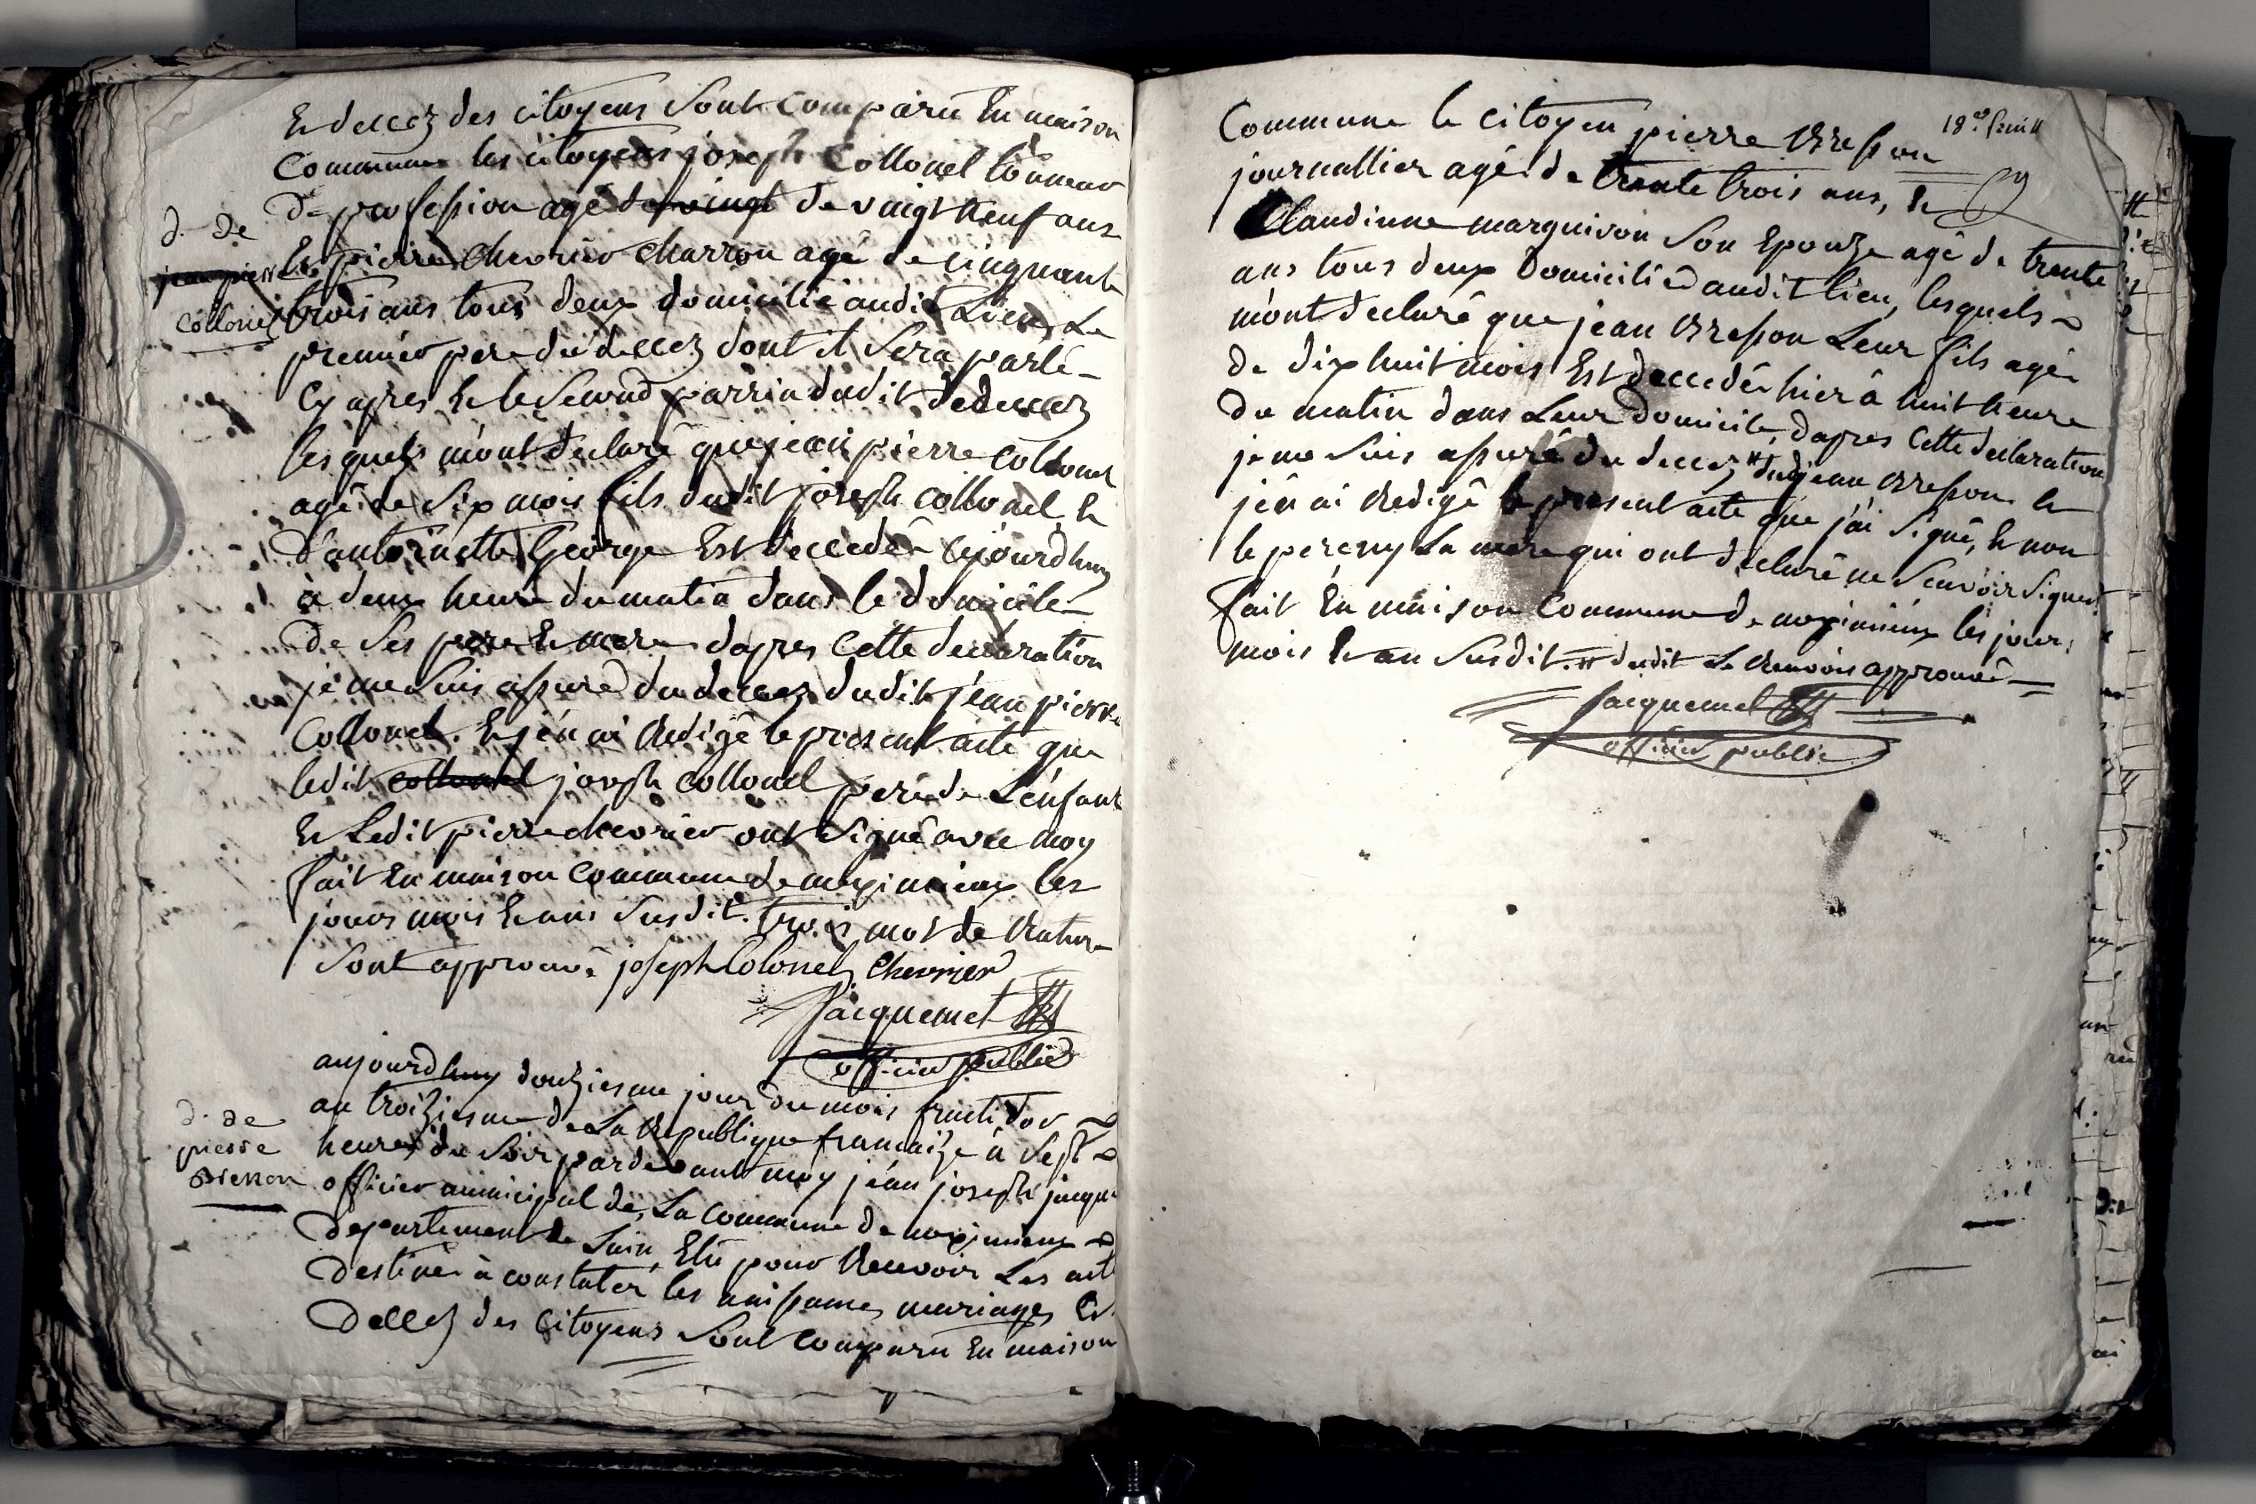 Et deccez des citoyens Sont Comparu En maison
Commune les citoyens joseph Collonel tonneur
De profession agé de vingt de vingt neuf ans
d. de
Et pierre chevrier charron agé de cinquante
jean pierre
trois ans tous deux domicilié audit Lieu, Le
Collonel
premier pere du deccez dont il Sera parlé
Cy apres Et le Second parrin dudit de deccez
lesquels m'ont declaré que jean pierre Collonel
agé de Six mois fils dudit joseph Collonel Et
D'antoinette George Est deccedé cejourdhuy
à deux heure du matin dans le domicile
De Ses pere Et mere dapres Cette declaration
je me Suis assuré du deccez dudit jean pierre
Collonel. Et j'en ai Redigé le present acte que
ledit Collonel joseph Collonel pere de L'enfant
Et Ledit pierre chevrier ont Signé avec moy
fait En maison Commune de meximieux les
jours mois Et ans Susdit. trois mot de Rature
Sont approuvé joseph Colonel Chevrier
Jacquemet
officier public
aujourdhuy douziesme jour du mois fructidor
an troiziesme de La Republique francaize à Sept
d. de
heures du Soir pardevant moy jean joseph jacque
pierre
officier municipal de La Commune de meximieux
Departement de Lain, Elu pour Recevoir Les act
Destinés à constater les naissances mariages Et
Deccez des Citoyens Sont Comparu En maison
18e feuill
Commune le Citoyen pierre
journallier agé de trente trois ans, Et
Claudinne marguivon Son Epouze agé de trente
ans tous deux Domicilié audit lieu, lesquels
m'ont declaré que jean Leur fils agé
de dix huit mois Est deccedé hier à huit heure
du matin dans Leur Domicile, dapres Cette declaration
je me Suis assuré du deccez # jean Et
j'en ai Redigé le present acte que j'ai Signé, Et non
le pere ny La mere qui ont declaré ne Scavoir Signer
fait En maison Commune de meximieux les jour,
mois Et an Susdit. # dudit Le Renvois approuvé
Jacquemet
officier public